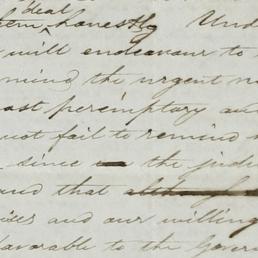 deal
them, honestly Und
will endeavour to
mind the urgent n
ast peremptory and
not fail to remind
since the jude
and that
ies and our willing
favorable to the Gover